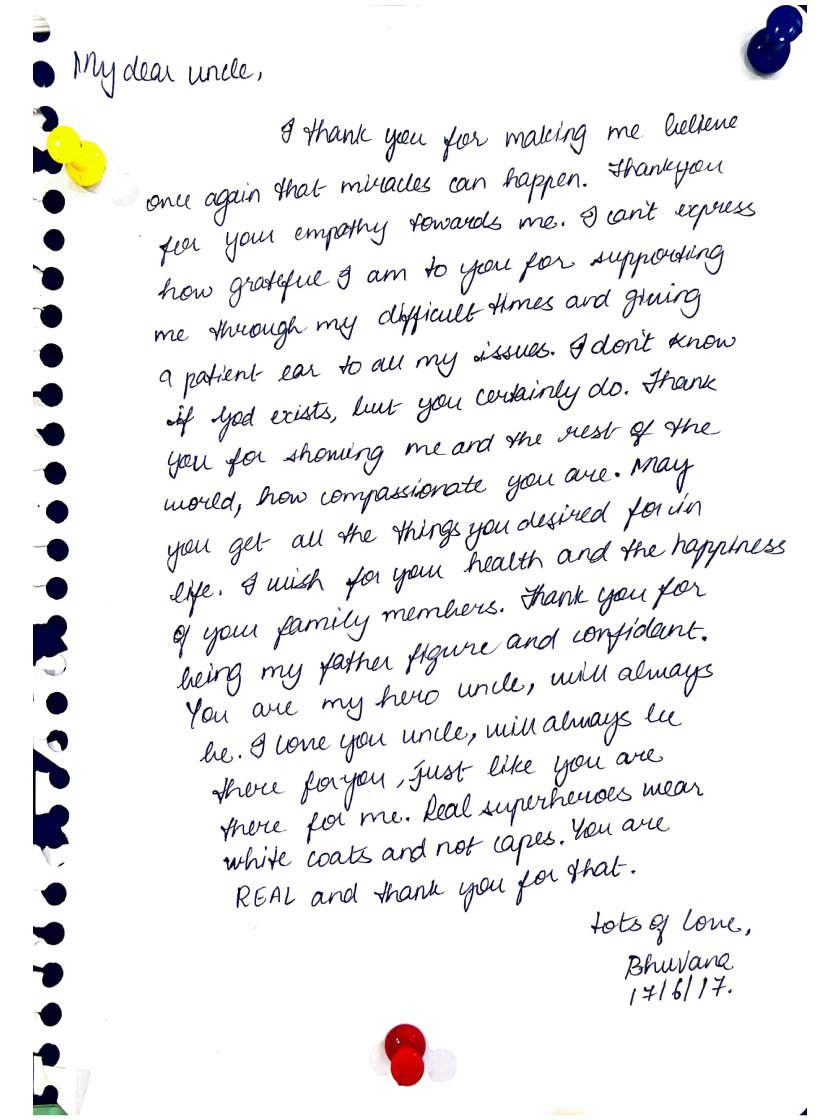 My dear uncle,
I thank you for making me believe
once again that miracles can happen. Thankyou
for your empathy towards me. I can't express
how grateful I am to you for supporting
me through my difficult times and giving
a patient ear to all my issues. I don't know
if God exists, but you certainly do. Thank
you for showing me and the rest of the
world, how compassionate you are. May
you get all the things you desired for in
life. I wish for your health and the happiness
of your family members. Thank you for
being my father figure and confidant.
You are my hero uncle, will always
be. I love you uncle, will always be
there for you, just like you are
there for me. Real superheroes wear
white coats and not capes. You are
REAL and thank you for that.
Lots of love,
Bhuvana
17/6/17.